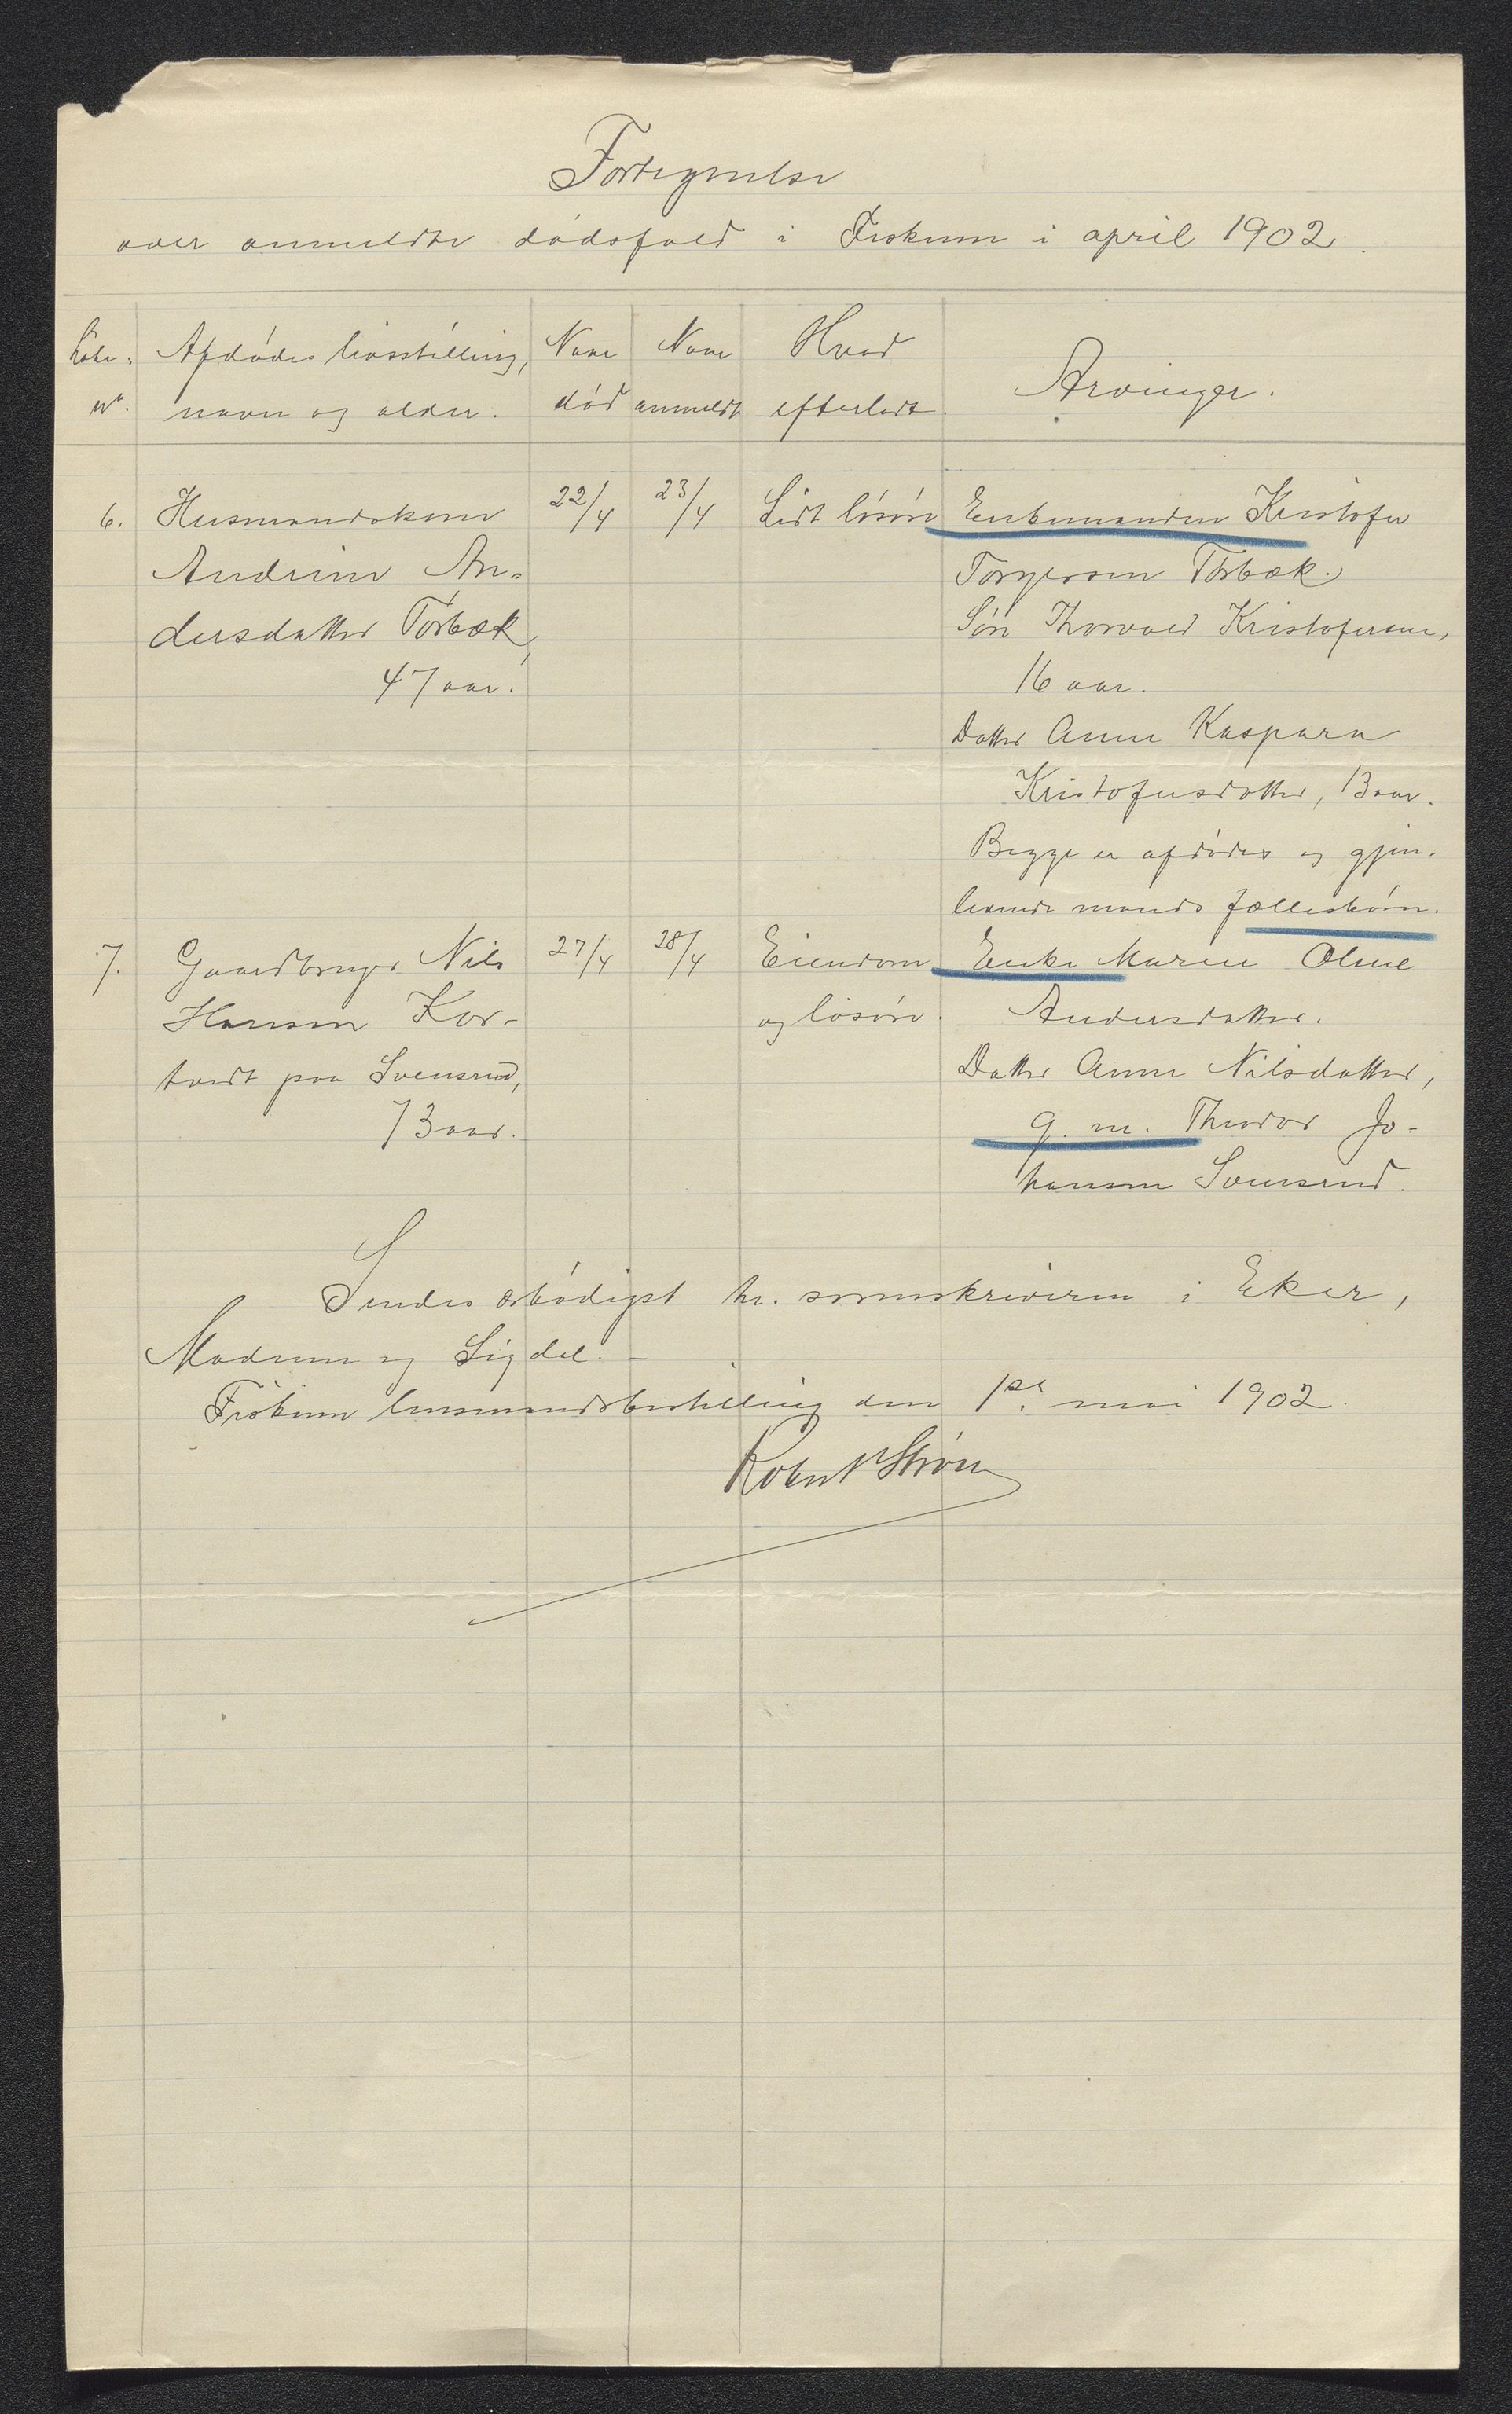 Fortegnelse
over anmeldte dødsfald i Fiskum i april 1902.
Løbe: Afdødes livsstilling, Naar Naar Hvad Arvinger.
nr. navn og alder. død anmeldt efterladt.
6. Husmandskone 22/4 23/4 Lidt løsøre Enkemanden Kristofer
Andrine An- Torgersen Tørbæk.
dersdatter Tørbæk, Søn Thorvald Kristofersen,
47 aar. 16 aar.
Datter Anne Kaspara
Kristofersdatter, 13 aar.
Begge er afdødes og gjen-
levende mands fællesbørn.
7. Gaardbruger Nils 27/4 28/4 Eiendom Enke Maren Oline
Hansen Kor- og løsøre. Andersdatter.
tvedt paa Svensrud, Datter Anne Nilsdatter,
73 aar. g. m. Theodor Jo-
hansen Svensrud.
Sendes ærbødigst hr. sorenskriveren i Eker,
Modum og Sigdal. —
Fiskum lensmandsbestilling den 1ste mai 1902.
Robert Strøm